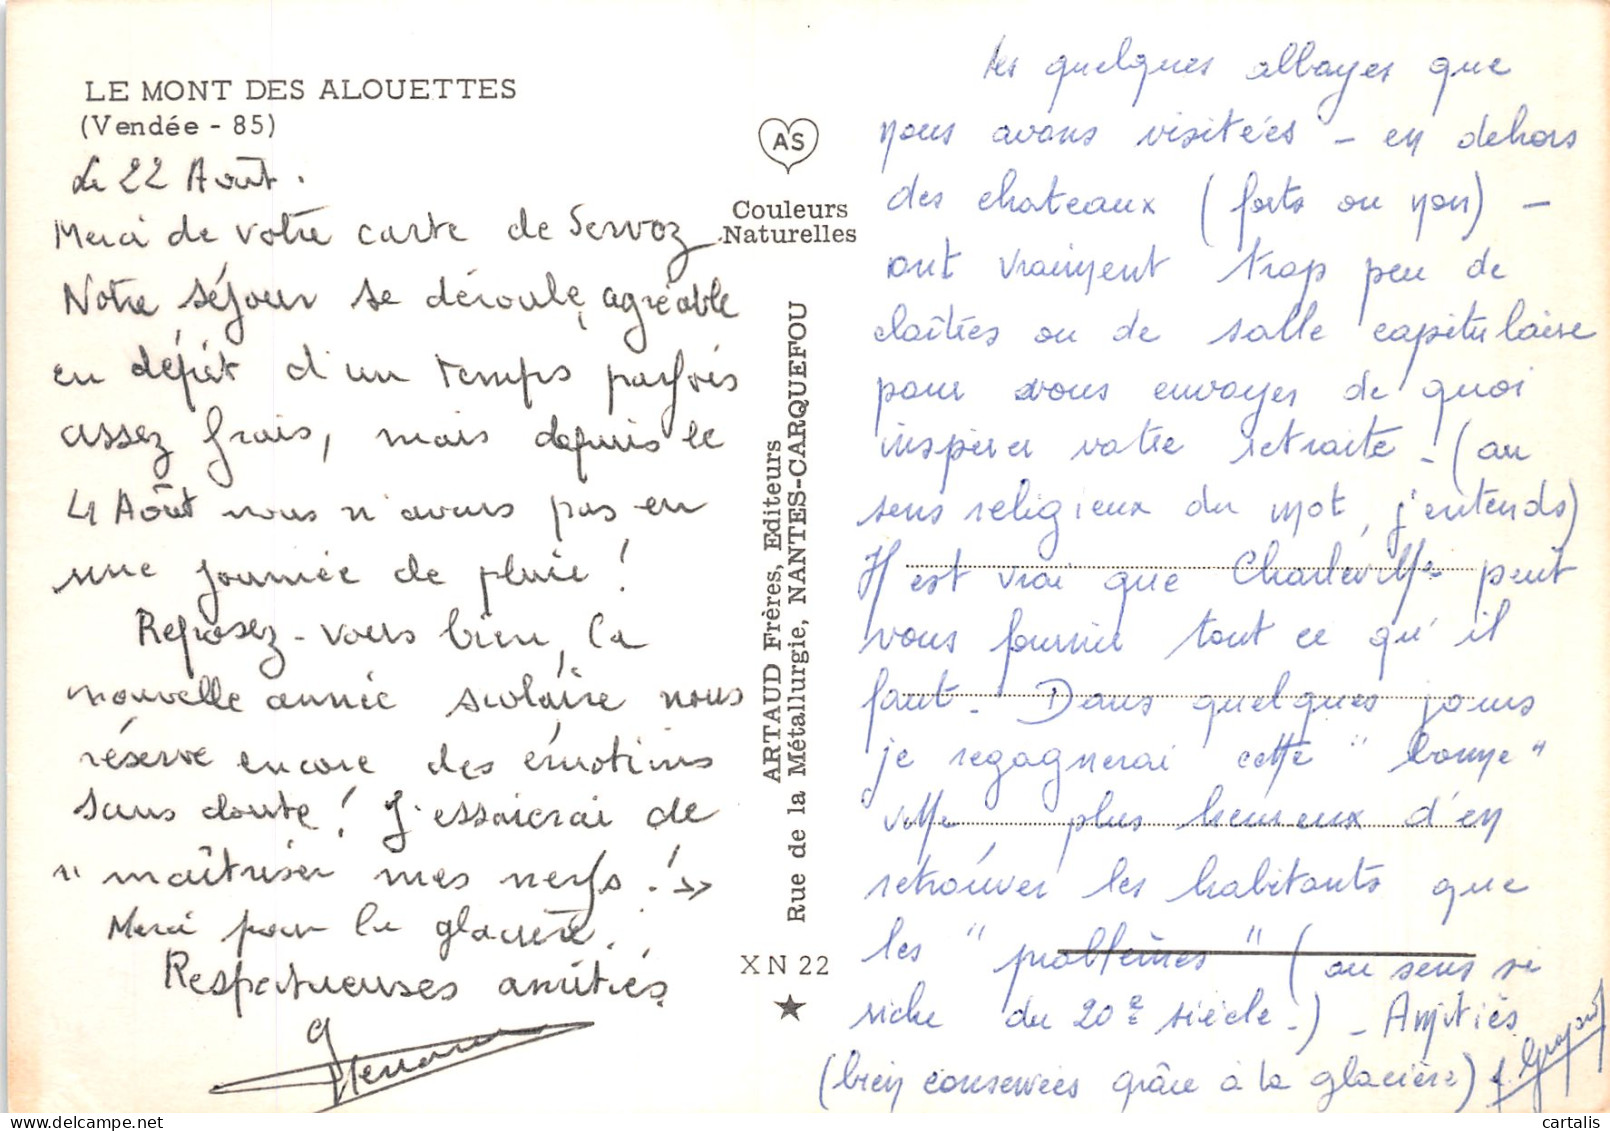 LE MONT DES ALOUETTES
(Vendée - 85)
Le 22 Août.
Merci de votre carte de Servoz
Notre séjour se déroule, agréable
en dépit d'un temps parfois
assez frais, mais depuis le
4 Août nous n'avons pas eu
une journée de pluie !
Reposez-vous bien, la
nouvelle année scolaire nous
réserve encore des émotions
sans doute ! J'essaierai de
"maîtriser mes nerfs !"
Merci pour la glacière.
Respectueuses amitiés
AS
Couleurs
Naturelles
ARTAUD Frères, Editeurs
Rue de la Métallurgie, NANTES-CARQUEFOU
XN 22
les quelques abbayes que
nous avons visitées - en dehors
des chateaux (forts ou non) -
ont vraiment trop peu de
cloîtres ou de salle capitulaire
pour vous envoyer de quoi
inspirer votre retraite - (au
sens religieux du mot, j'entends)
Il est vrai que Charleville peut
vous fournir tout ce qu'il
faut. Dans quelques jours
je regagnerai cette "bonne"
ville plus heureux d'en
retrouver les habitants que
les "problèmes" (au sens si
riche du 20e siècle.) - Amitiés
(bien conservées grâce à la glacière)